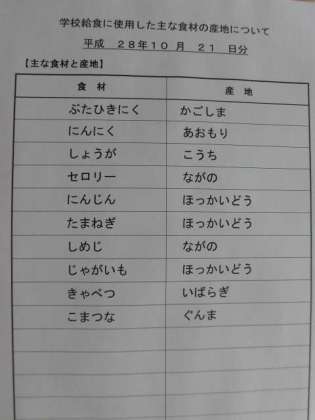 学校給食に使用した主な食材の産地について
平成 28年10 月 21 日分
【主な食材と産地】
食材 産地
ぶたひきにく かごしま
にんにく あおもり
しょうが こうち
セロリー ながの
にんじん ほっかいどう
たまねぎ ほっかいどう
しめじ ながの
じゃがいも ほっかいどう
きゃべつ いばらぎ
こまつな ぐんま